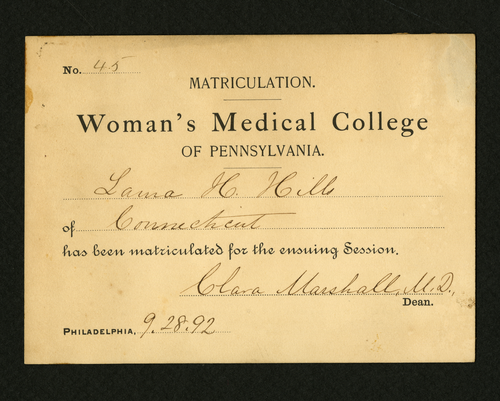 No. 45
MATRICULATION.
Woman's Medical College
OF PENNSYLVANIA.
Laura H. Hills
of Connecticut
has been matriculated for the ensuing Session.
Clara Marshall, M.D.,
Dean.
PHILADELPHIA, 9.28.92